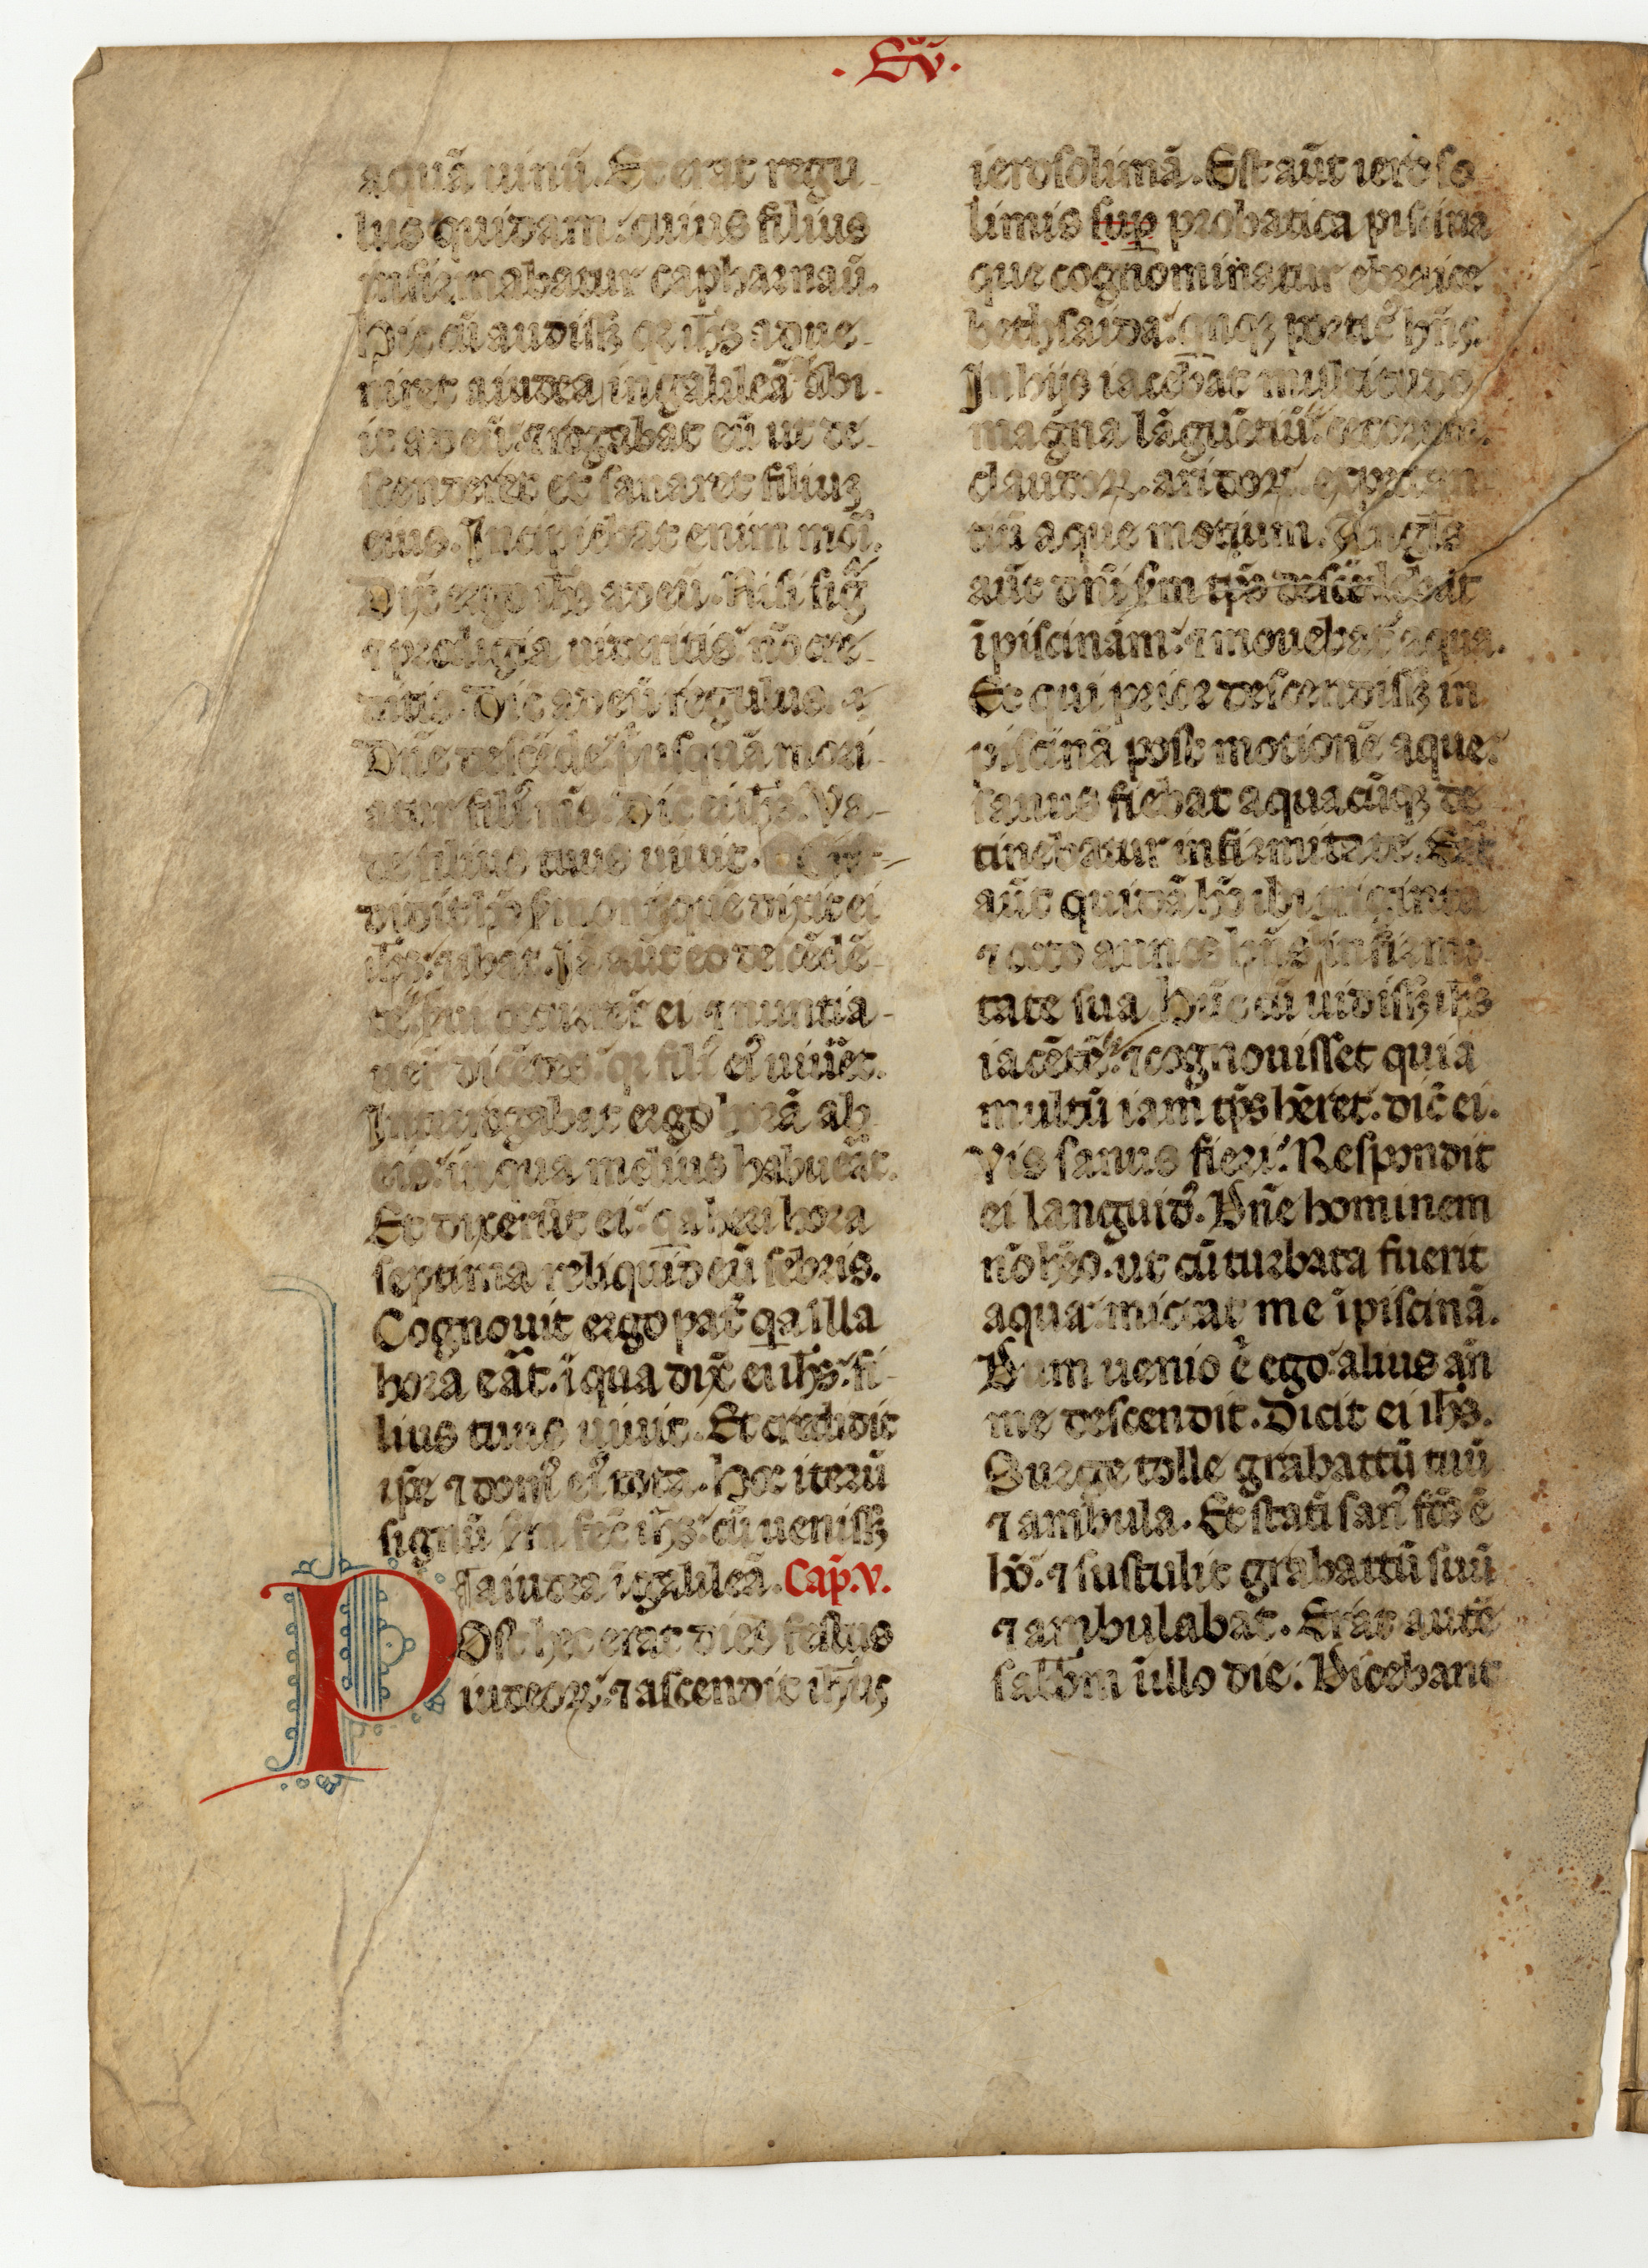 . Eṽ.
aquā uinū. Et erat regu-
lus quidam: cuius filius
infirmabatur capharnaū.
Hic cū audiss₃ qr ihs̄ adue-
niret a iudea in galileā abi-
it ad eū: ⁊ rogabat eū ut de-
scenderet et sanaret filiuz
eius. Incipiebat enim mōi.
Dix̄ ergo ihs̄ ad eū. Nisi sigᷓ
⁊ prodigia uideritis nō cre-
ditis. Dic̄ ad eū regulus.
Dn̄e descēde pͥusquā mori-
atur filꝰ mꝰs. Dic̄ ei ihs̄. Va-
de filius tuus uiuit.
didit hō smoni quē dixit ei
ihs̄: ⁊ ibat. Iā aūt eo descēdē-
te: sui occurrer̄ ei ⁊ nuntia-
uer̄ dicētes: qr filꝰ eiꝰ uiuet.
Interrogabat ergo horā ab
eis: in qua melius habuēat.
Et dixerūt ei: qa heri hora
septima reliquid eū febris.
Cognouit ergo pat̄ qa illa
hora eāt. ī qua dix̄ ei ihs̄: fi-
lius tuus uiuit. Et credidit
ip̄e ⁊ domꝰ eiꝰ tota. Hoc iterū
signū sm̄ fec̄ ihs̄: cū ueniss₃
a iudea ī galileā. Cap̄. v.
Post hec erat dies festus
iudeoꝝ: ⁊ ascendit ihūs
ierosolimā. Est aūt ieroso-
limis suꝑ probatica piscina
que cognominatur ebraice
bethsaida: qnq₃ portic̄ hn̄s.
In hijs iacebat multitudo
magna lāguētiū: cecorum.
claudoꝝ. aridoꝝ. expectan-
tiū aque motum. Angls̄
aūt dn̄i sm̄ tp̄s descēdebat
ī piscinam: ⁊ mouebat̄ aqua.
Et qui prior descendiss₃ in
piscinā post motionē aque:
sanus fiebat a quacūq₃ de-
tinebatur infirmitate. Eāt
aūt quidā hō ibi triginta
⁊ octo annos hn̄s in firmi-
tate sua. Hūc cū uidiss₃ ihs̄
iacētē: ⁊ cognouisset quia
multū iam tp̄s hēret: dic̄ ei.
Vis sanus fieri: Respondit
ei languidꝰ. Dn̄e hominem
nō hēo. ut cū turbata fuerit
aqua: mittat me ī piscinā.
Dum uenio ē ego: alius an̄
me descendit. Dicit ei ihs̄.
Surge tolle grabattū tuū
⁊ ambula. Et statī sanꝰ fcs̄ ē
hō. ⁊ sustulit grabattū suū
⁊ ambulabat. Erat autē
sabbm̄ ī illo die. Dicebant